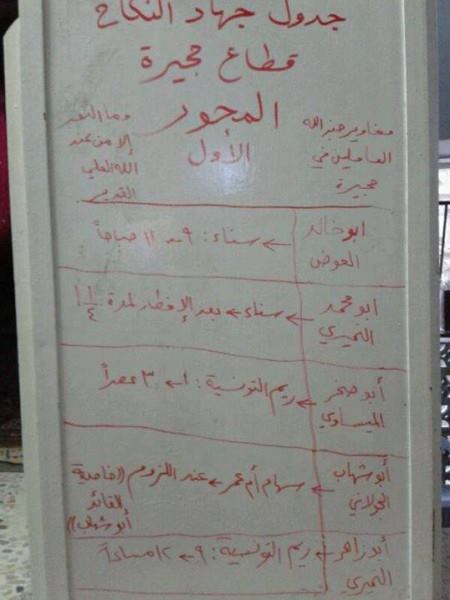 جدول جهاد النكاح
قطاع حجيرة
المحور
الأول
مغاوير حزب الله
العاملين في
حجيرة
وما النصر
إلا من عند
الله العلي
القدير
ابو خالد
العوض
← سناء: ٩ → ١١ صباحاً
ابو محمد
النميري
← سناء ← بعد الإفطار لمدة ١ ١/٤
أبو صخر
الميساوي
← ريم التونسية: ١ → ٣ عصراً
أبو شهاب
الجولاني
← سهام أم عمر ← عند اللزوم ((خاصية
للقائد
أبو شهاب))
أبو زاهر
النميري
← ريم التونسية: ٩ → ١٢ مساءاً